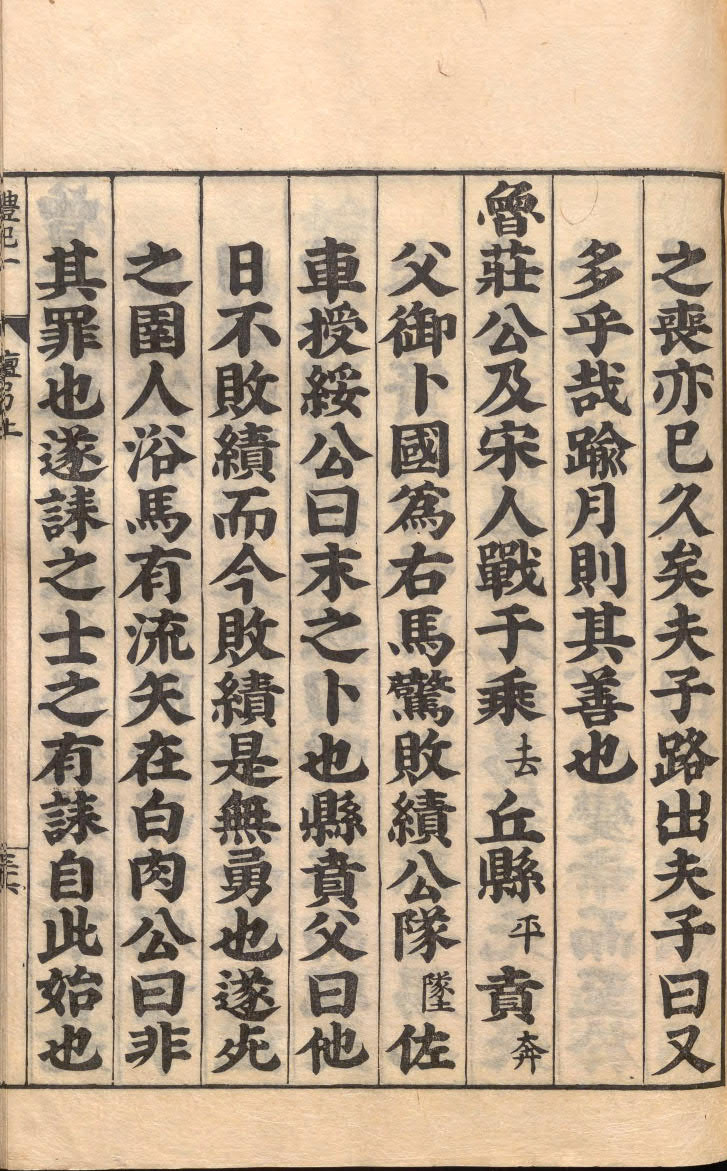 之喪亦已久矣夫子路出夫子曰又
多乎哉踰月則其善也
魯莊公及宋人戰于乘去丘縣平賁奔
父御卜國爲右馬驚敗績公隊墜佐
車授綏公曰末之卜也縣賁父曰他
日不敗績而今敗績是無勇也遂死
之圉人浴馬有流矢在白肉公曰非
其罪也遂誄之士之有誄自此始也
禮記一 檀弓上